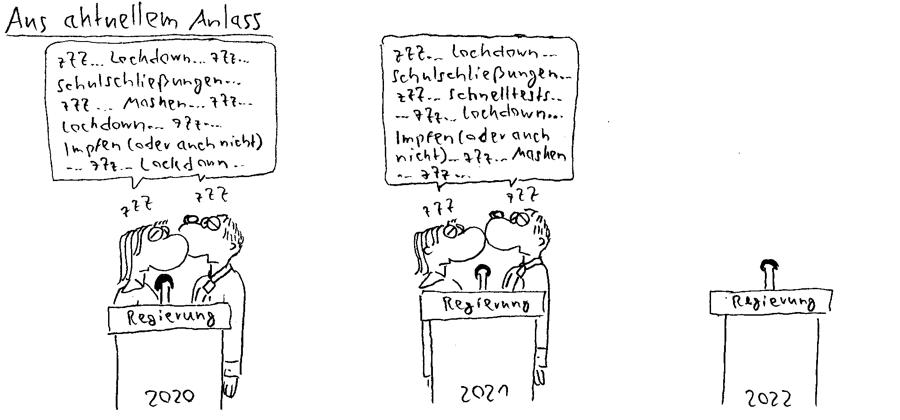 Aus aktuellem Anlass
zzz... Lockdown... zzz...
Schulschließungen...
zzz... Masken... zzz...
Lockdown... zzz....
Impfen (oder auch nicht)
... zzz... Lockdown...
zzz
zzz
Regierung
2020
zzz... Lockdown...
Schulschließungen...
zzz... Schnelltests...
... zzz... Lockdown...
Impfen (oder auch
nicht)... zzz... Masken
... zzz...
zzz
zzz
Regierung
2021
Regierung
2022